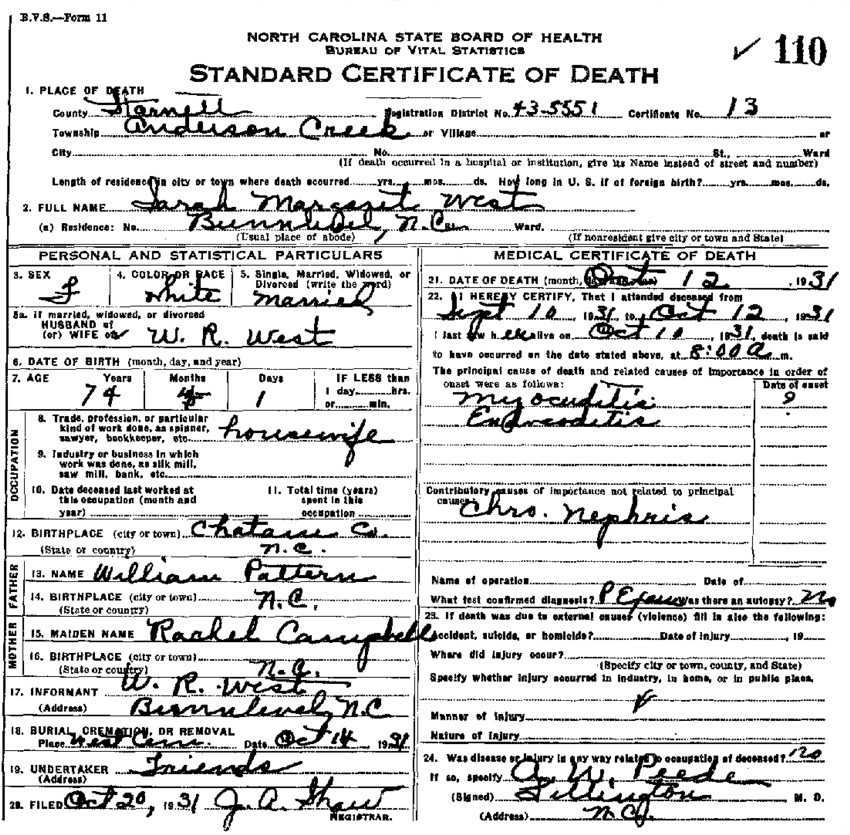 B.V.S.—Form 11
NORTH CAROLINA STATE BOARD OF HEALTH
BUREAU OF VITAL STATISTICS
✓ 110
STANDARD CERTIFICATE OF DEATH
1. PLACE OF DEATH
County Harnett Registration District No. 43-5551 Certificate No. 13
Township Anderson Creek or Village or
City No. St., Ward
(If death occurred in a hospital or institution, give its Name instead of street and number)
Length of residence in city or town where death occurred yrs. mos. ds. How long in U. S. if of foreign birth? yrs. mos. ds.
2. FULL NAME Sarah Margaret West
(a) Residence: No. Bunnlevel, N.C. St. Ward.
(Usual place of abode) (If nonresident give city or town and State)
PERSONAL AND STATISTICAL PARTICULARS
3. SEX 4. COLOR OR RACE 5. Single, Married, Widowed, or
Divorced (write the word)
F white married
5a. if married, widowed, or divorced
HUSBAND of
(or) WIFE of W. R. West
6. DATE OF BIRTH (month, day, and year)
7. AGE Years Months Days IF LESS than
1 day hrs.
74 1 or min.
OCCUPATION
8. Trade, profession, or particular
kind of work done, as spinner,
sawyer, bookkeeper, etc. housewife
9. Industry or business in which
work was done, as silk mill,
saw mill, bank, etc.
10. Date deceased last worked at
this occupation (month and
year)
11. Total time (years)
spent in this
occupation
12. BIRTHPLACE (city or town) Chatam Co.
(State or country) N.C.
FATHER
13. NAME William Pattern
14. BIRTHPLACE (city or town)
(State or country) N.C.
MOTHER
15. MAIDEN NAME Rachel Campbell
16. BIRTHPLACE (city or town)
(State or country) N.C.
17. INFORMANT W. R. West
(Address) Bunnlevel, N.C
18. BURIAL, CREMATION, OR REMOVAL
Place West Cem. Date Oct 14, 1931
19. UNDERTAKER Friends
(Address)
20. FILED Oct 20, 1931 J. A. Shaw
REGISTRAR.
MEDICAL CERTIFICATE OF DEATH
21. DATE OF DEATH (month, Oct 12, 1931
22. I HEREBY CERTIFY, That I attended deceased from
Sept 10 1931 to Oct 12 1931
I last saw her alive on Oct 10, 1931, death is said
to have occurred on the date stated above, at 8:00 a. m.
The principal cause of death and related causes of importance in order of
onset were as follows:
Date of onset
Myocuditis ?
Endcoditis
Contributory causes of importance not related to principal
cause:
Chro. Nephris
Name of operation Date of
What test confirmed diagnosis? P Exam Was there an autopsy? No
23. If death was due to external causes (violence) fill in also the following:
Accident, suicide, or homicide? Date of injury , 19
Where did injury occur?
(Specify city or town, county, and State)
Specify whether injury occurred in industry, in home, or in public place.
Manner of injury
Nature of injury
24. Was disease or injury in any way related to occupation of deceased? no
If so, specify
(Signed) A. W. Peede M. D.
(Address) Lillington
N.C.